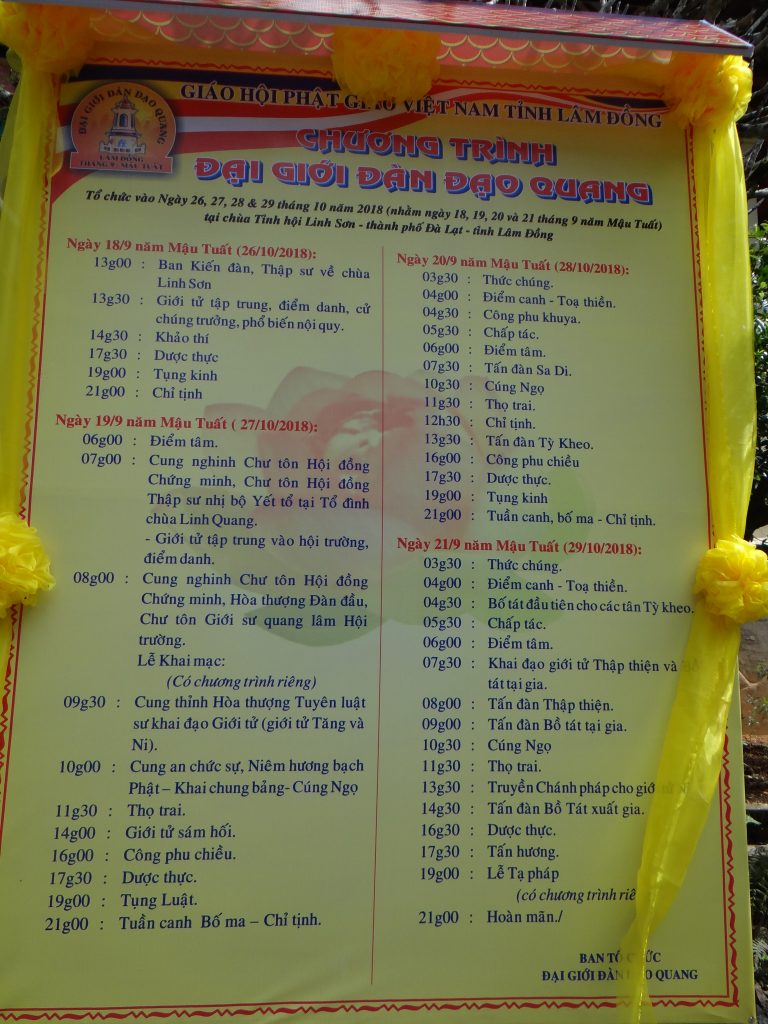 GIÁO HỘI PHẬT GIÁO VIỆT NAM TỈNH LÂM ĐỒNG
ĐẠI GIỚI ĐÀN ĐẠO QUANG
LÂM ĐỒNG
THÁNG 9 - MẬU TUẤT
CHƯƠNG TRÌNH
ĐẠI GIỚI ĐÀN ĐẠO QUANG
Tổ chức vào Ngày 26, 27, 28 & 29 tháng 10 năm 2018 (nhằm ngày 18, 19, 20 và 21 tháng 9 năm Mậu Tuất)
tại chùa Tỉnh hội Linh Sơn - thành phố Đà Lạt - tỉnh Lâm Đồng
Ngày 18/9 năm Mậu Tuất (26/10/2018):
13g00 : Ban Kiến đàn, Thập sư về chùa
Linh Sơn
13g30 : Giới tử tập trung, điểm danh, cử
chúng trưởng, phổ biến nội quy.
14g30 : Khảo thí
17g30 : Dược thực
19g00 : Tụng kinh
21g00 : Chỉ tịnh
Ngày 19/9 năm Mậu Tuất ( 27/10/2018):
06g00 : Điểm tâm.
07g00 : Cung nghinh Chư tôn Hội đồng
Chứng minh, Chư tôn Hội đồng
Thập sư nhị bộ Yết tổ tại Tổ đình
chùa Linh Quang.
- Giới tử tập trung vào hội trường,
điểm danh.
08g00 : Cung nghinh Chư tôn Hội đồng
Chứng minh, Hòa thượng Đàn đầu,
Chư tôn Giới sư quang lâm Hội
trường.
Lễ Khai mạc:
(Có chương trình riêng)
09g30 : Cung thỉnh Hòa thượng Tuyên luật
sư khai đạo Giới tử (giới tử Tăng và
Ni).
10g00 : Cung an chức sự, Niêm hương bạch
Phật – Khai chung bảng- Cúng Ngọ
11g30 : Thọ trai.
14g00 : Giới tử sám hối.
16g00 : Công phu chiều.
17g30 : Dược thực.
19g00 : Tụng Luật.
21g00 : Tuần canh Bố ma – Chỉ tịnh.
Ngày 20/9 năm Mậu Tuất (28/10/2018):
03g30 : Thức chúng.
04g00 : Điểm canh - Toạ thiền.
04g30 : Công phu khuya.
05g30 : Chấp tác.
06g00 : Điểm tâm.
07g30 : Tấn đàn Sa Di.
10g30 : Cúng Ngọ
11g30 : Thọ trai.
12h30 : Chỉ tịnh.
13g30 : Tấn đàn Tỳ Kheo.
16g00 : Công phu chiều
17g30 : Dược thực.
19g00 : Tụng kinh
21g00 : Tuần canh, bố ma - Chỉ tịnh.
Ngày 21/9 năm Mậu Tuất (29/10/2018):
03g30 : Thức chúng.
04g00 : Điểm canh - Toạ thiền.
04g30 : Bố tát đầu tiên cho các tân Tỳ kheo.
05g30 : Chấp tác.
06g00 : Điểm tâm.
07g30 : Khai đạo giới tử Thập thiện và Bồ
tát tại gia.
08g00 : Tấn đàn Thập thiện.
09g00 : Tấn đàn Bồ tát tại gia.
10g30 : Cúng Ngọ
11g30 : Thọ trai.
13g30 : Truyền Chánh pháp cho giới tử Ni
14g30 : Tấn đàn Bồ Tát xuất gia.
16g30 : Dược thực.
17g30 : Tấn hương.
19g00 : Lễ Tạ pháp
(có chương trình riê
21g00 : Hoàn mãn./
BAN TỔ CHỨC
ĐẠI GIỚI ĐÀN ĐẠO QUANG